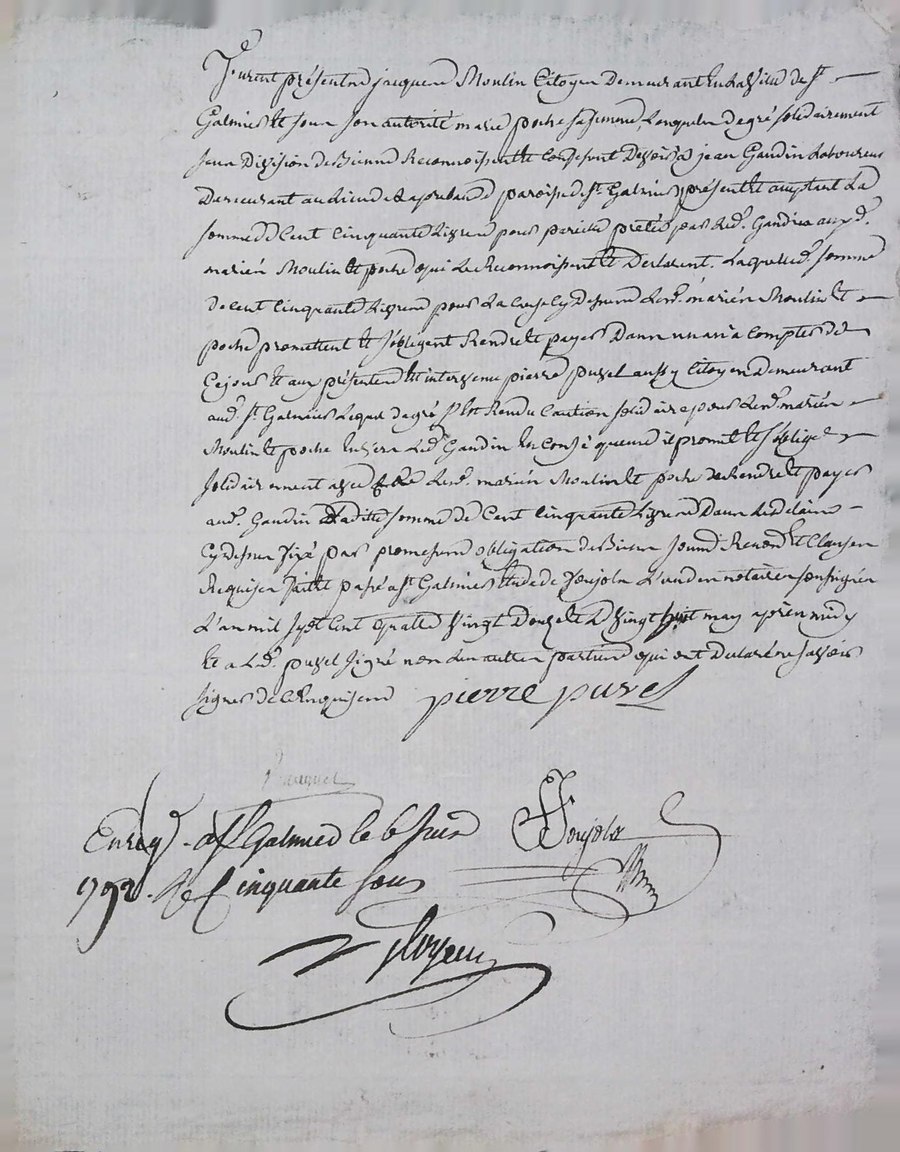 furent présentes jacques Moulin Citoyen Demeurant En La Ville de St
Galmier et sous son autorité marie poche sa femme, Lesquels de gré solidairement
sans Division de Biens Reconnoissent et Confessent Devoir a jean Gaudin Laboureur
Demeurant au Lieu de paroisse de St. Galmier present et acceptant La
somme de Cent Cinquante Livres pour pareille pretée par Led. Gaudin auxd.
mariés Moulin et poche qui Le Reconnoissent et Declarent. Laquelle d. somme
de Cent Cinquante Livres pour La Cause Cy Dessus Lesd. mariés Moulin et
poche promettent et s'obligent Rendre et payer Dans un an a Compter de
Ce jour et aux présentes Est intervenu pierre puzel aussy Citoyen demeurant
aud. St. Galmier Lequel de gré s'est Rendu Caution solidaire pour Lesd. mariés
Moulin et poche Envers Led. Gaudin En Consequence il promet et s'oblige
solidairement avec Lesd. mariés Moulin et poche de Rendre et payer
aud. Gaudin Ladite somme de Cent Cinquante Livres Dans Le delaire
Cy Dessus fixé par promesses obligation de Biens soumis Renonces et Clauses
Requises fait et passé a St. Galmier Etude de Soujols L'un des notaires soussignés
L'an mil sept Cent quatre Vingt Douze Le Vingt huit may après midy
Et a Led. puzel signé non Les autres parties qui ont Declaré ne savoir
signer de Ce Enquis
pierre puzel
Enreg. a St Galmier le 6 juin
1792. Re Cinquante sous
Soujols